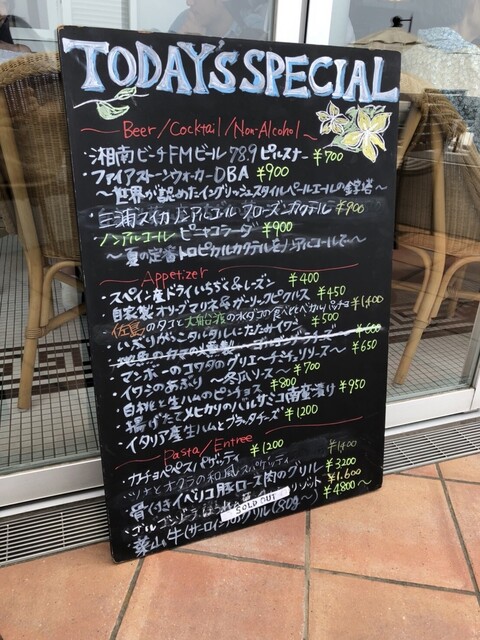 TODAY'S SPECIAL
Beer/Cocktail/Non-Alcohol
・湘南ビーチFMビール78.9 ピルスナー ¥700
・ファイアストーンウォーカーDBA ¥900
～世界が認めたイングリッシュスタイルペールエールの
・三浦スイカ ノンアルコール フローズンカクテル ¥900
・ノンアルコール ピニャコラーダ ¥900
～夏の定番トロピカルカクテルをノンアルコールで～
Appetizer
・スペイン産ドライいちぢく&レーズン ¥400
・自家製オリーブマリネ&ガーリックピクルス ¥450
・佐島のタコと大船渡の水ダコの食べくらべカルパッチョ ¥1,400
・いぶりがっこタルタルにたたみイワシ ¥500
¥600
・マンボーのコワタのグリエ ¥650
・イワシのあぶり ～冬瓜ソース～ ¥700
・白桃と生ハムのピンチョス ¥800
・揚げたてメヒカリのバルサミコ南蛮漬け ¥950
・イタリア産生ハムとブッラータチーズ ¥1200
Pasta/Entree
・カチョエペペスパゲッティ ¥1,200
・ツナとオクラの和風スパゲッティ ¥1,400
・骨付きイベリコ豚ロース肉のグリル ¥3200
・ゴルゴンゾーラ リゾット ¥1,600
SOLD OUT
・葉山牛(サーロイン)のグリル(80g～) ¥4800～